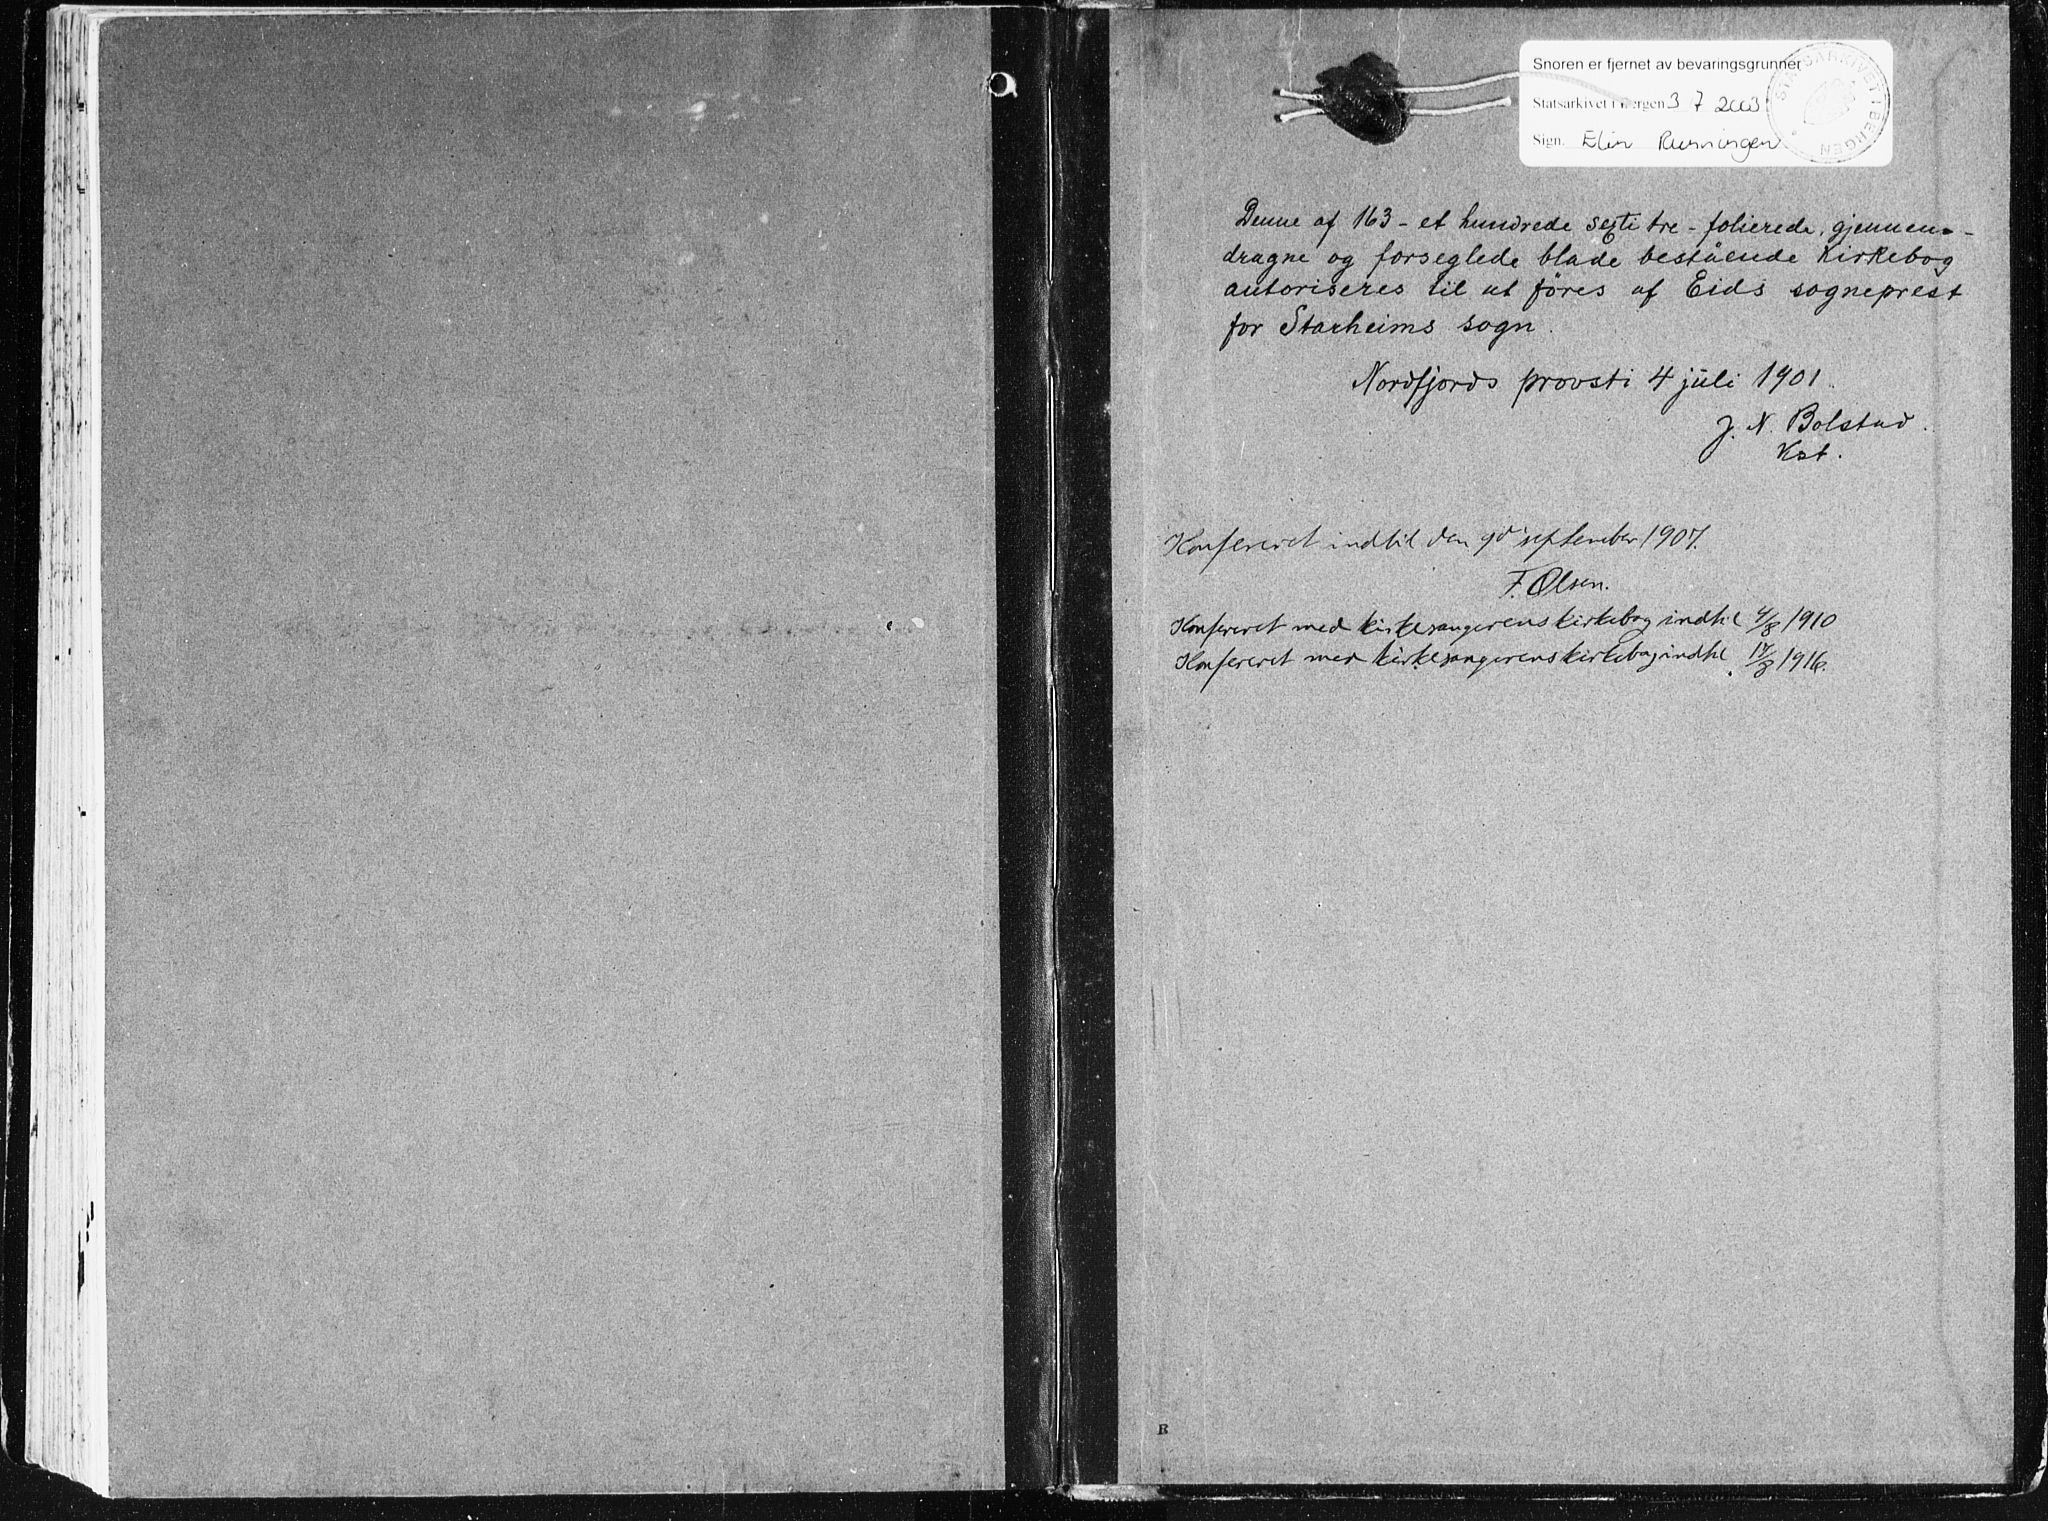 Snoren er fjernet av bevaringsgrunner
Statsarkivet i Bergen 3 7 2003
Sign. Elin
STATSARKIVET I BERGEN
Denne af 163 - et hundrede sexti tre - folierede, gjennem-
dragne og forseglede blade bestående Kirkebog
autoriseres til at föres af Eids sogneprest
for Starheims sogn.
Nordfjords provsti 4 juli 1901.
J. N. Bolstad.
Kst.
Konfereret indtil den 9d september 1907.
F. Olsen.
Konfereret med kirkesangerens kirkebog indtil 4/8 1910
Konfereret med kirkesangerens kirkebog indtil 17/8 1916.
R